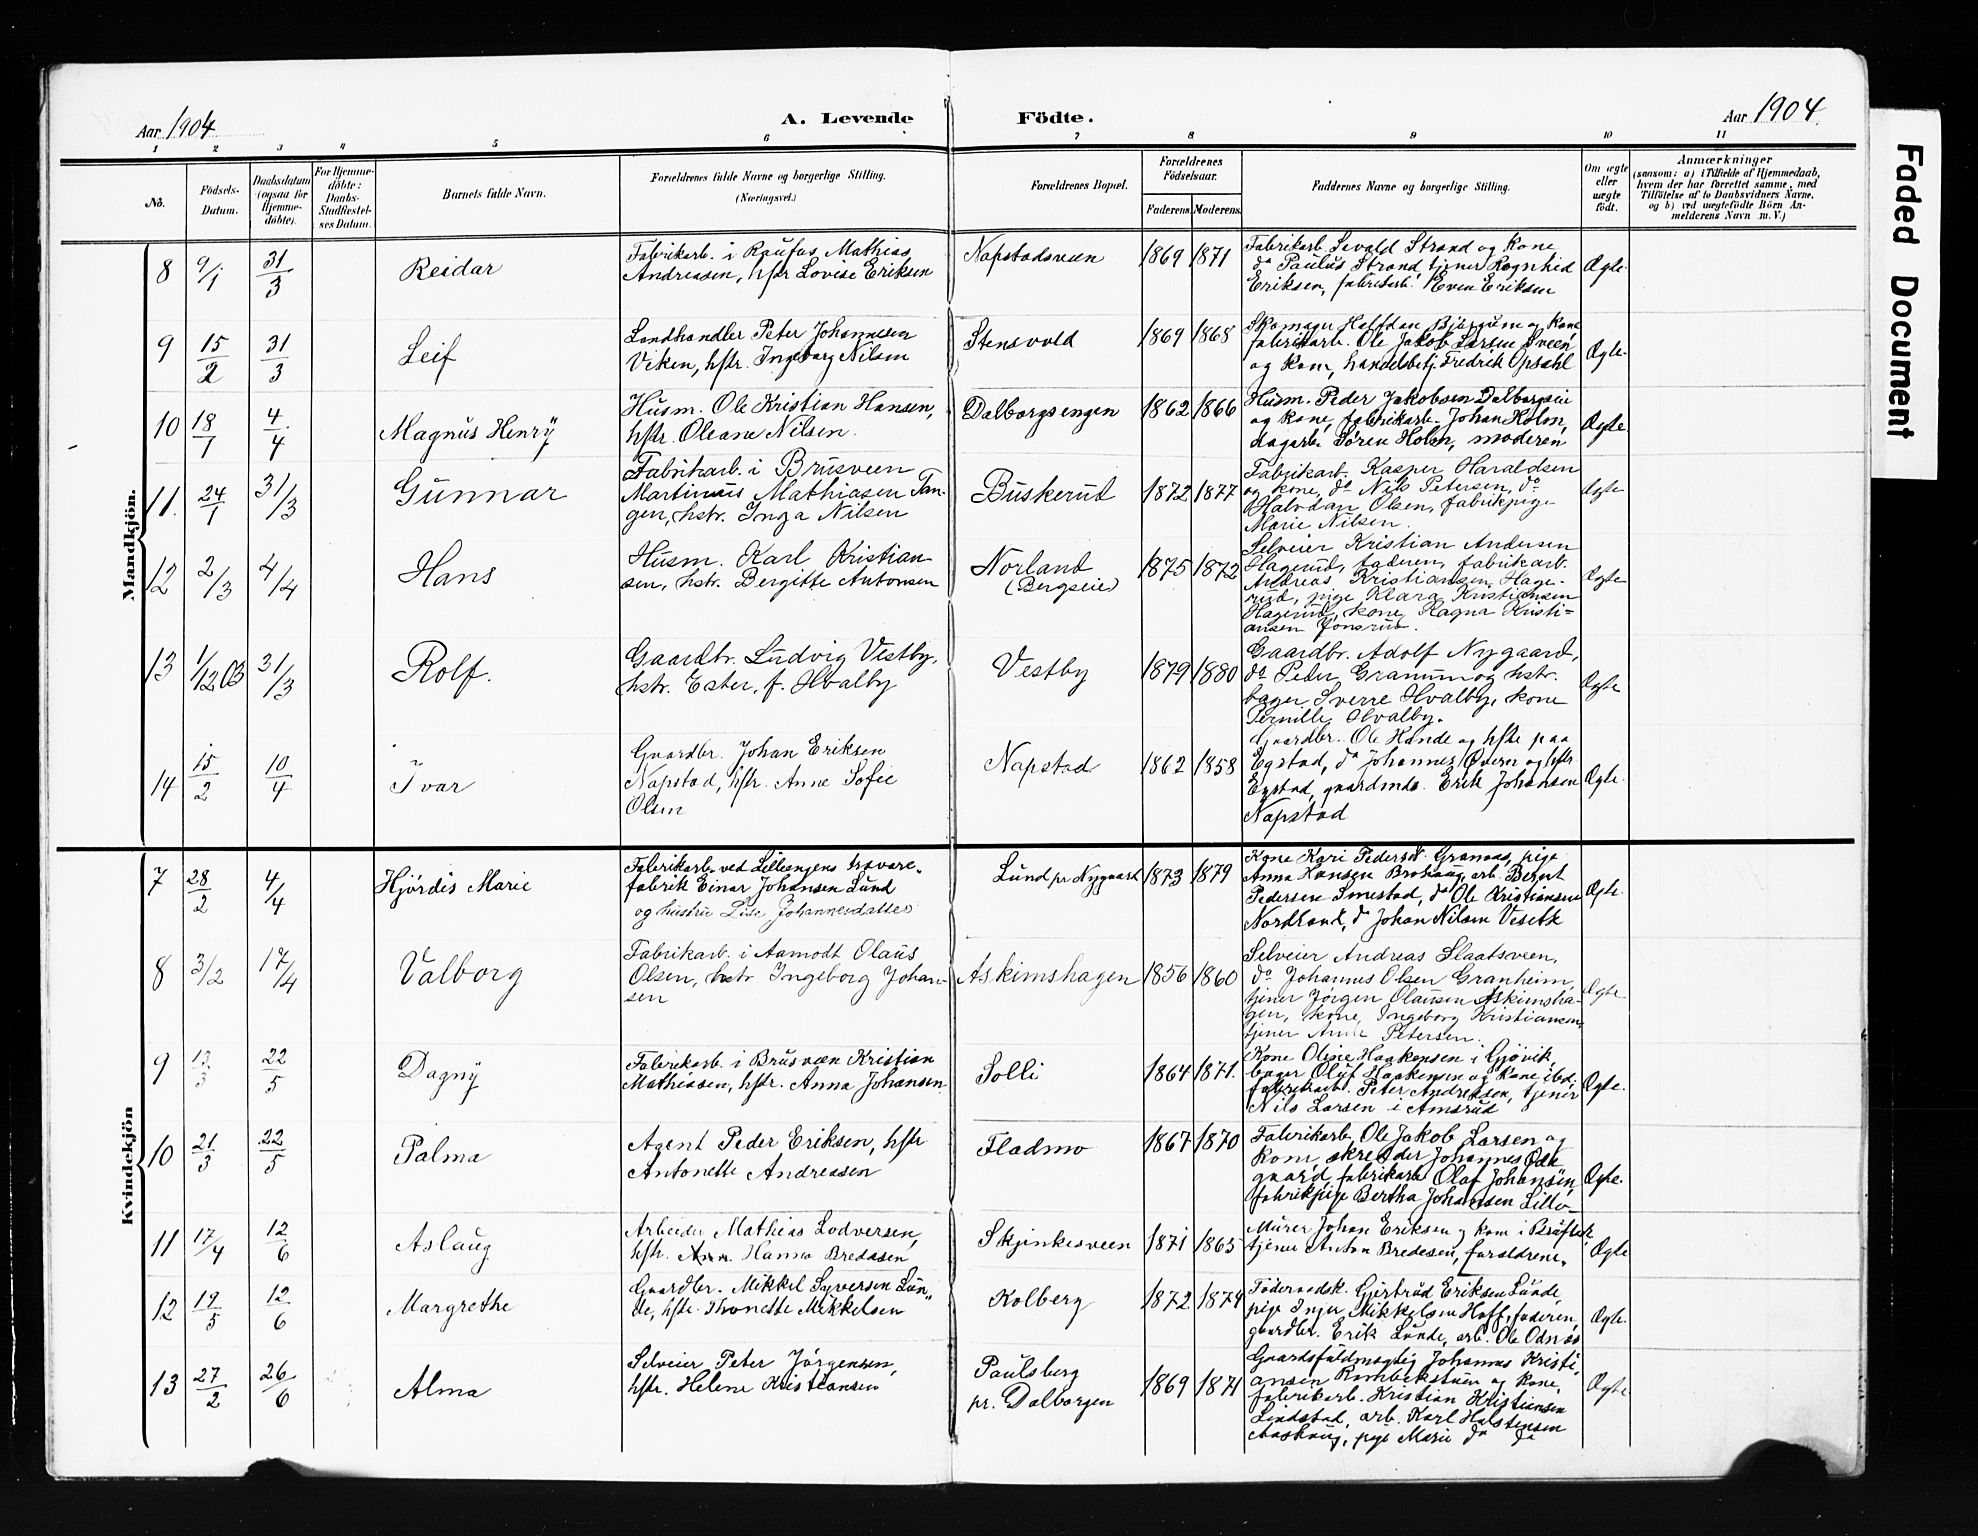 Aar 1904
A. Levende
Födte.
Aar 1904.
Faded Document
1 2 3 4 5 6 7 8 9 10 11
No.
Födsels-
Datum.
Daabsdatum
(ogsaa for
Hjemme-
döbte).
For Hjemme-
döbte:
Daabs-
Stadfæstel-
ses Datum.
Barnets fulde Navn.
Forældrenes fulde Navne og borgerlige Stilling.
(Næringsvei.)
Forældrenes Bopæl.
Forældrenes
Födselsaar.
Faderens. Moderens.
Faddernes Navne og borgerlige Stilling.
Om ægte
eller
uægte
födt.
Anmærkninger
(saasom: a) i Tilfælde af Hjemmedaab,
hvem der har forrettet samme, med
Tilföielse af to Daabsvidners Navne,
og b) ved uægtefödte Börn An-
melderens Navn m. V.)
Mandkjön.
8 9/1 31/3 Reidar
Fabrikarb. i Raufos Mathias
Andreasen, hstr Lovise Eriksen
Napstadsveen 1869 1871
Fabrikarb. Sevald Strand og Kone
do Paulus Strand, tjener Ragnhild
Eriksen, fabrikarb. Even Eriksen
Ægte.
9 15/2 31/3 Leif
Landhandler Peter Johannesen
Viken, hstr. Ingeborg Nilsen
Stensvold 1869 1868
Skomager Halfdan Bjørgum og Kone
fabrikarb. Ole Jakob Larsen Sveen
og Kone, handelsbetj. Fredrik Opsahl
Ægte.
10 18/1 4/4 Magnus Henry
Husm. Ole Kristian Hansen,
hstr. Oleane Nilsen.
Dalborgsengen 1862 1866
Husm. Peder Jakobsen Dalborgseie
og kone, fabrikarb. Johan Holm,
dagarb. Sören Holm, moderen
Ægte.
11. 24/1 31/3 Gunnar
Fabrikarb. i Brusveen
Martinius Mathiasen Tan-
gen, hstr. Inga Nilsen
Buskerud 1872 1877
Fabrikarb. Kasper Haraldsen
og kone, do Nils Petersen, do
Halvdan Olsen, fabrikpige
Marie Nilsen.
Ægte
12 2/3 4/4 Hans
Husm. Karl Kristian-
sen, hstr. Bergitte Antonsen
Norland
(Bergseie) 1875 1872
Selveier Kristian Andersen
Hagerud, faderen, fabrikarb.
Andreas Kristiansen Hage-
rud, pige Klara Kristiansen
Hagerud, kone Ragna Kristi-
ansen Jonsrud.
Ægte
13 1/12 03 31/3 Rolf.
Gaardbr. Ludvig Vestby,
hstr. Ester, f. Hvalby
Vestby 1879 1880
Gaardbr. Adolf Nygaard,
do Peder Granum og hstr.
bager Sverre Hvalby, kone
Pernille Hvalby.
Ægte
14 15/2 10/4 Ivar
Gaardbr. Johan Eriksen
Napstad, hstr. Anne Sofie
Olsen
Napstad 1862 1858
Gaardbr. Ole Hande og hstr paa
Egstad, do Johannes Øveren og hstr
Egstad, gaardmd. Erik Johansen
Napstad
Ægte.
Kvindekjön
7 28/2 4/4 Hjördis Marie
Fabrikarb. ved Lilleengens trævare-
fabrik Einar Johansen Lund
og hustru Lise Johannesdatter
Lund pr Nygaard 1873 1879
Kone Kari Pedersen Granaas, pige
Anna Hansen Brohaug, arb. Bernt
Pedersen Smestad, do Ole Kristiansen
Nordland, do Johan Nilsen Veseth
Ægte.
8 3/2 17/4 Valborg
Fabrikarb. i Aamodt Olaus
Olsen, hstr Ingeborg Johan-
sen
Askimshagen 1856 1860
Selveier Andreas Slaatsveen,
do Johannes Olsen Granheim,
tjener Jörgen Olausen Askimsha-
gen, kone Ingeborg Kristiansen,
tjener Anne Petersen.
Ægte
9 13/3 22/5 Dagny
Fabrikarb. i Brusveen Kristian
Mathiasen, hstr. Anna Johansen
Solli 1864 1871.
Kone Oline Haakensen i Gjövik,
bager Oluf Haakensen og Kone ibd.
fabrikarb. Peter Andreasen, tjener
Nils Larsen i Amsrud
Ægte.
10 21/3 22/5 Palma
Agent Peder Eriksen, hstr
Antonette Andreasen
Fladmo 1867 1870
Fabrikarb. Ole Jakob Larsen og
Kone, skredder Johannes Öde
gaard, fabrikarb Olaf Johansen,
fabrikpige Bertha Johansen Lillo
Ægte.
11 17/4 12/6 Aslaug
Arbeider Mathias Lodversen,
hstr. Hanna Bredesen
Skjinkesveen 1871 1865
Murer Johan Eriksen og Kone i
tjener Anton Bredesen, forældrene.
Ægte
12 19/5 12/6 Margrethe
Gaardbr. Mikkel Syversen Lun-
de, hstr. Thonette Mikkelsen
Kolberg 1872 1874
Föderaadsk. Gjertrud Eriksen Lunde,
pige Inger Mikkelsen Hoff, faderen,
gaardbr. Erik Lunde, arb. Ole Odnæs
Ægte.
13 27/2 26/6 Alma
Selveier Peter Jörgensen,
hstr. Helene Kristiansen
Paulsberg
pr. Dalborgen 1869 1871
Gaardsfuldmægtig Johannes Kristi-
ansen og Kone,
fabrikarb. Kristian Kristiansen
Lindstad, arb. Karl Halstensen
Aashaug, pige Marie do do
Ægte